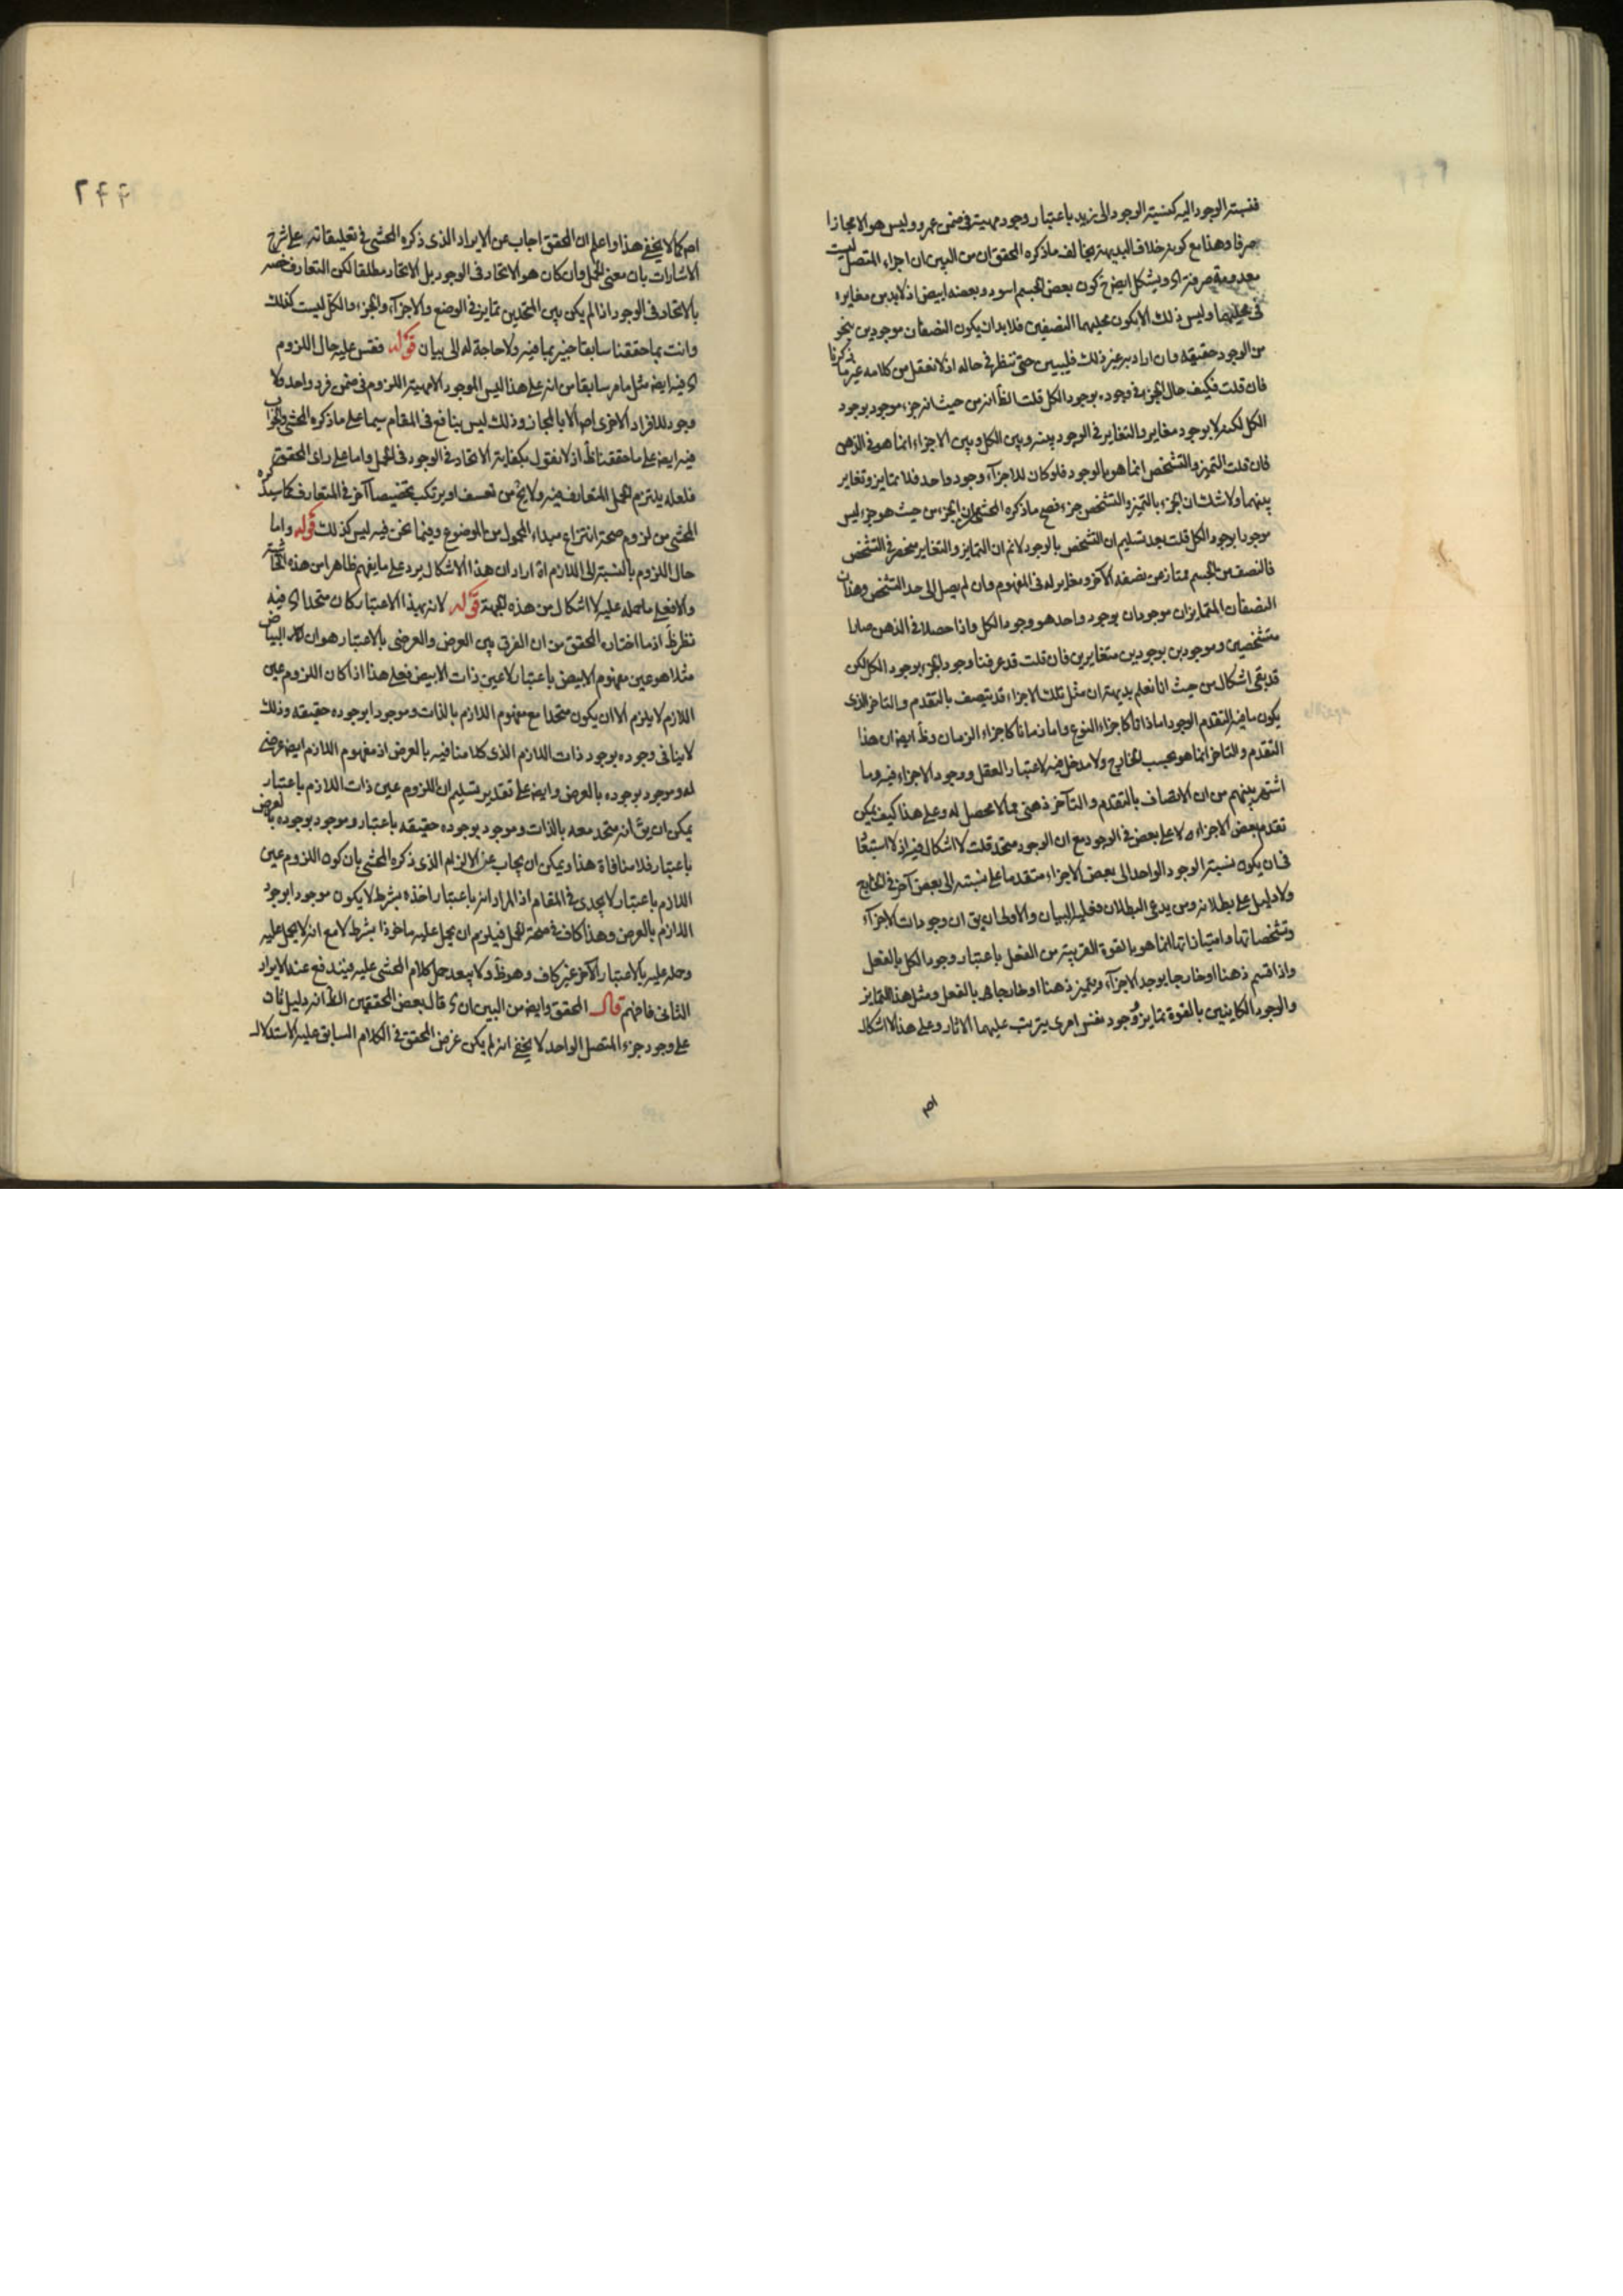 فنسبته الوجود اليه كنسبته الوجود الى زيد باعتبار وجود مهيته في ضمن عمرو وليس هو الا مجازا
صرفا وهذا مع كونه خلاف البديهة يخالف ما ذكره المحقق ان من البين ان اجزاء المتصل ليست
معدومة صرفة اى ويشكل ايضا كون بعض الجسم اسود وبعضه ابيض اذ لابد من مغايرة
فى محليهما وليس ذلك الا بكون محليهما النصفين فلابد ان يكون النصفان موجودين بنحو
من الوجود حقيقة وان اراد به غير ذلك فليبين حتى ننظر في حاله اذ لا نعقل من كلامه غير ما ذكرنا
فان قلت فكيف حال الجزء في وجوده بوجود الكل قلت الظ انه من حيث انه جزء موجود بوجود
الكل لكنه لا بوجود مغاير والتغاير في الوجود بينه وبين الكل وبين الاجزاء انما هو في الذهن
فان قلت التميز والتشخص انما هو بالوجود فلو كان للاجزآء وجود واحد فلا تمايز وتغاير
بينهما ولا شك ان الجزء بالتميز والتشخص جزء فصح ما ذكره المحشى ان الجزء من حيث هو جزء ليس
موجودا بوجود الكل قلت بعد تسليم ان التشخص بالوجود لانم ان التمايز والتغاير منحصر في التشخص
فالنصف من الجسم ممتاز عن نصفه الآخر ومغاير له فى المفهوم وان لم يصل الى حد التشخص وهذان
النصفان المتمايزان موجودان بوجود واحد هو وجود الكل واذا حصلا في الذهن صارا
متشخصين وموجودين بوجودين متغايرين فان قلت قد عرفنا وجود الجزء بوجود الكل لكن
قد بقى اشكال من حيث انا نعلم بديهة ان مثل تلك الاجزاء قد يتصف بالتقدم والتاخر الذى
يكون ما فيه التقدم الوجود اما ذاتا كاجزاء النوع واما زمانا كاجزاء الزمان وظ ايضا ان هذا
التقدم والتاخر انما هو بحسب الخارج ولا مدخل فيه لاعتبار العقل ووجود الاجزاء فيه وما
اشتهر بينهم من ان الاتصاف بالتقدم والتأخر ذهنى مما لا محصل له وعلى هذا كيف يمكن
تقدم بعض الاجزاء على بعض في الوجود مع ان الوجود متحد قلت لا اشكال فيه اذ لا استبعاد
فى ان يكون نسبته الوجود الواحد الى بعض الاجزاء متقدما على نسبته الى بعض آخر في الخارج
ولا دليل على بطلانه ومن يدعى البطلان فعليه البيان والاولى ان يق ان وجودات الاجزآء
وتشخصاتها وامتيازاتها انما هو بالقوة القريبة من الفعل باعتبار وجود الكل بالفعل
واذا قسم ذهنا او خارجا يوجد الاجزآء ويتميز ذهنا او خارجا بالفعل ومثل هذا التمايز
والوجود الكاينين بالقوة تمايز ووجود نفس امرى يترتب عليهما الاثار وعلى هذا لا اشكال
اص
٢۴۴
اص كما لا يخفى هذا واعلم ان المحقق اجاب عن الايراد الذى ذكره المحشى في تعليقاته على شرح
الاشارات بان معنى الحمل وان كان هو الاتحاد فى الوجود بل الاتحاد مطلقا لكن التعارف خصه
بالاتحاد فى الوجود اذا لم يكن بين المتحدين تمايز في الوضع والاجزآء والجزء والكل ليست كذلك
وانت بما حققنا سابقا خبير بما فيه ولا حاجة له الى بيان قوله فقس عليه حال اللزوم
اى فيه ايضا مثل ما مر سابقا من انه على هذا ليس الموجود الا مهيته اللزوم في ضمن فرد واحد ولا
وجود للافراد الاخرى اص الا بالمجاز وذلك ليس بنافع فى المقام سيما على ما ذكره المحشى والجواب
فيه ايضا على ما حققنا ظ اذ لا نقول بكفاية الاتحاد في الوجود فى الحمل واما على راى المحقق
فلعله يلتزم الحمل المتعارف فيه ولا يخ من تعسف او يرتكب تخصيصا آخر في المتعارف كما سيذكره
المحشى من لزوم صحة انتزاع مبداء المحمول من الموضوع وفيما نحن فيه ليس كذلك قوله واما
حال اللزوم بالنسبة الى اللازم اه اراد ان هذا الاشكال يرد على ما يفهم ظاهرا من هذه الحاشية
والا فعلى ما حمله عليه لا اشكال من هذه الجهة قوله لانه بهذا الاعتبار كان متحدا اى فيه
نظر ظ اذ ما اختاره المحقق من ان الفرق بين العرض والعرضى بالاعتبار هو ان البياض
مثلا هو عين مفهوم الابيض باعتبار لا عين ذات الابيض فعلى هذا اذا كان اللزوم عين
اللازم لا يلزم الا ان يكون متحدا مع مفهوم اللازم بالذات وموجودا بوجوده حقيقة وذلك
لا ينافى وجوده بوجود ذات اللازم الذى كلامنا فيه بالعرض اذ مفهوم اللازم ايضا عرضى
له وموجود بوجوده بالعرض وايضا على تقدير تسليم ان اللزوم عين ذات اللازم باعتبار
يمكن ان يق انه متحد معه بالذات وموجود بوجوده حقيقة باعتبار وموجود بوجوده بالعرض
باعتبار فلا منافاة هذا ويمكن ان يجاب عن الالزام الذى ذكره المحشى بان كون اللزوم عين
اللازم باعتبار لا يجدى في المقام اذ المراد انه باعتبار اخذه بشرط لا يكون موجودا بوجود
اللازم بالعرض وهذا كاف في صحة الحمل فيلزم ان يحمل عليه ماخوذا بشرط لا مع انه لا يحمل عليه
وحمله عليه بالاعتبار الآخر غير كاف وهو ظ ولا يبعد حمل كلام المحشى عليه فيندفع عنه الايراد
الثانى فافهم قال المحقق وايضا من البين ان اى قال بعض المحققين الظ انه دليل ثان
على وجود جزء المتصل الواحد لا يخفى انه لم يكن غرض المحقق في الكلام السابق عليه الاستدلال